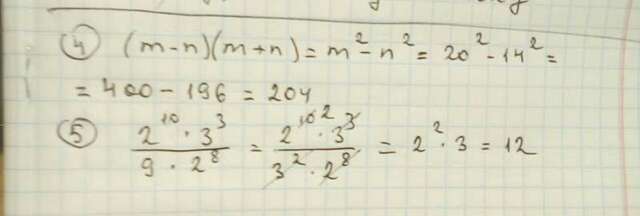 ④ (m-n)(m+n) = m² - n² = 20² - 14² =
= 400 - 196 = 204
⑤ (2¹⁰ · 3³)/(9 · 2⁸) = (2¹⁰ ² · 3³)/(3² · 2⁸) = 2² · 3 = 12